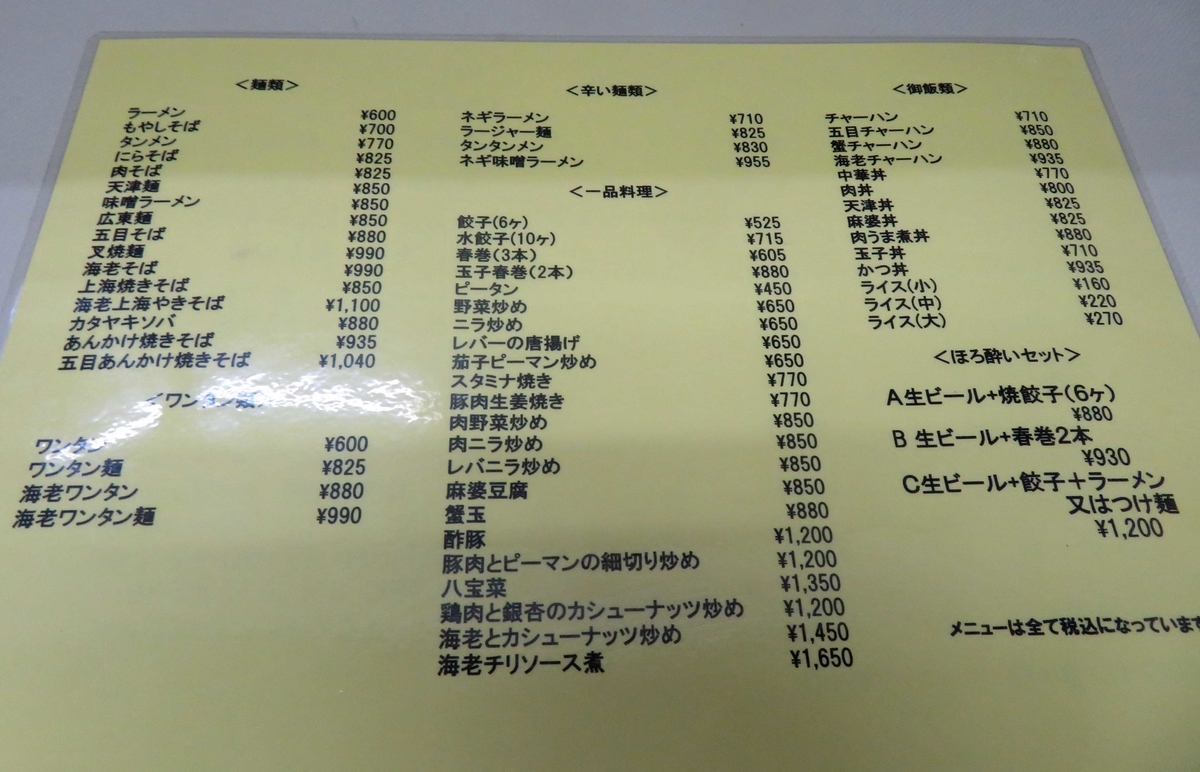 ＜麺類＞
ラーメン ¥600
もやしそば ¥700
タンメン ¥770
にらそば ¥825
肉そば ¥825
天津麺 ¥850
味噌ラーメン ¥850
広東麺 ¥850
五目そば ¥880
叉焼麺 ¥990
海老そば ¥990
上海焼きそば ¥850
海老上海やきそば ¥1,100
カタヤキソバ ¥880
あんかけ焼きそば ¥935
五目あんかけ焼きそば ¥1,040
＜ワンタン類＞
ワンタン ¥600
ワンタン麺 ¥825
海老ワンタン ¥880
海老ワンタン麺 ¥990
＜辛い麺類＞
ネギラーメン ¥710
ラージャー麺 ¥825
タンタンメン ¥830
ネギ味噌ラーメン ¥955
＜一品料理＞
餃子(6ヶ) ¥525
水餃子(10ヶ) ¥715
春巻(3本) ¥605
玉子春巻(2本) ¥880
ピータン ¥450
野菜炒め ¥650
ニラ炒め ¥650
レバーの唐揚げ ¥650
茄子ピーマン炒め ¥650
スタミナ焼き ¥770
豚肉生姜焼き ¥770
肉野菜炒め ¥850
肉ニラ炒め ¥850
レバニラ炒め ¥850
麻婆豆腐 ¥850
蟹玉 ¥880
酢豚 ¥1,200
豚肉とピーマンの細切り炒め ¥1,200
八宝菜 ¥1,350
鶏肉と銀杏のカシューナッツ炒め ¥1,200
海老とカシューナッツ炒め ¥1,450
海老チリソース煮 ¥1,650
＜御飯類＞
チャーハン ¥710
五目チャーハン ¥850
蟹チャーハン ¥880
海老チャーハン ¥935
中華丼 ¥770
肉丼 ¥800
天津丼 ¥825
麻婆丼 ¥825
肉うま煮丼 ¥880
玉子丼 ¥710
かつ丼 ¥935
ライス(小) ¥160
ライス(中) ¥220
ライス(大) ¥270
＜ほろ酔いセット＞
A生ビール+焼餃子(6ヶ)
¥880
B 生ビール+春巻2本
¥930
C生ビール+餃子＋ラーメン
又はつけ麺
¥1,200
メニューは全て税込になっています